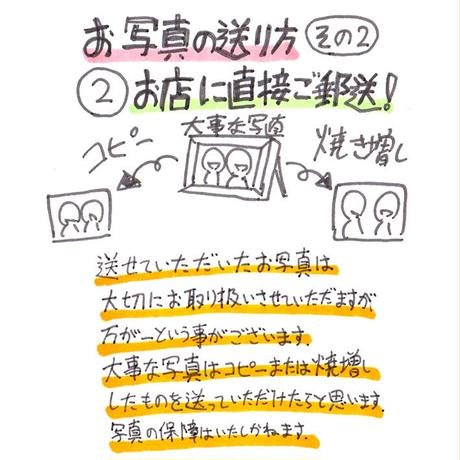 お写真の送り方 その2
② お店に直接ご郵送!
大事な写真
コピー
焼き増し
送せていただいたお写真は
大切にお取り扱いさせていただますが
万が一という事がございます
大事な写真はコピーまたは焼増し
したものを送っていただけたらと思います.
写真の保障はいたしかねます.